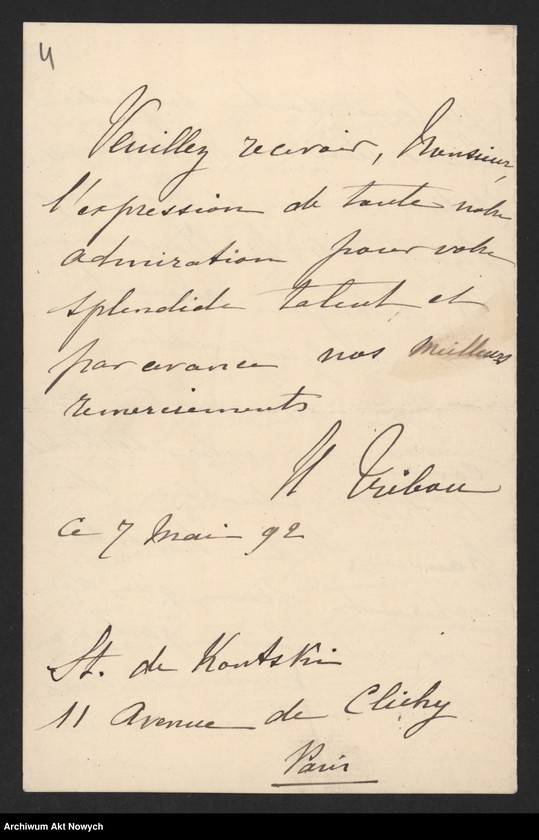 4
Veuillez recevoir, Monsieur,
l'expression de toute notre
admiration pour votre
splendide talent et
par avance nos meilleurs
remerciements
H Tribou
Ce 7 Mai 92
St. de Kontski
11 Avenue de Clichy
Paris
Archiwum Akt Nowych